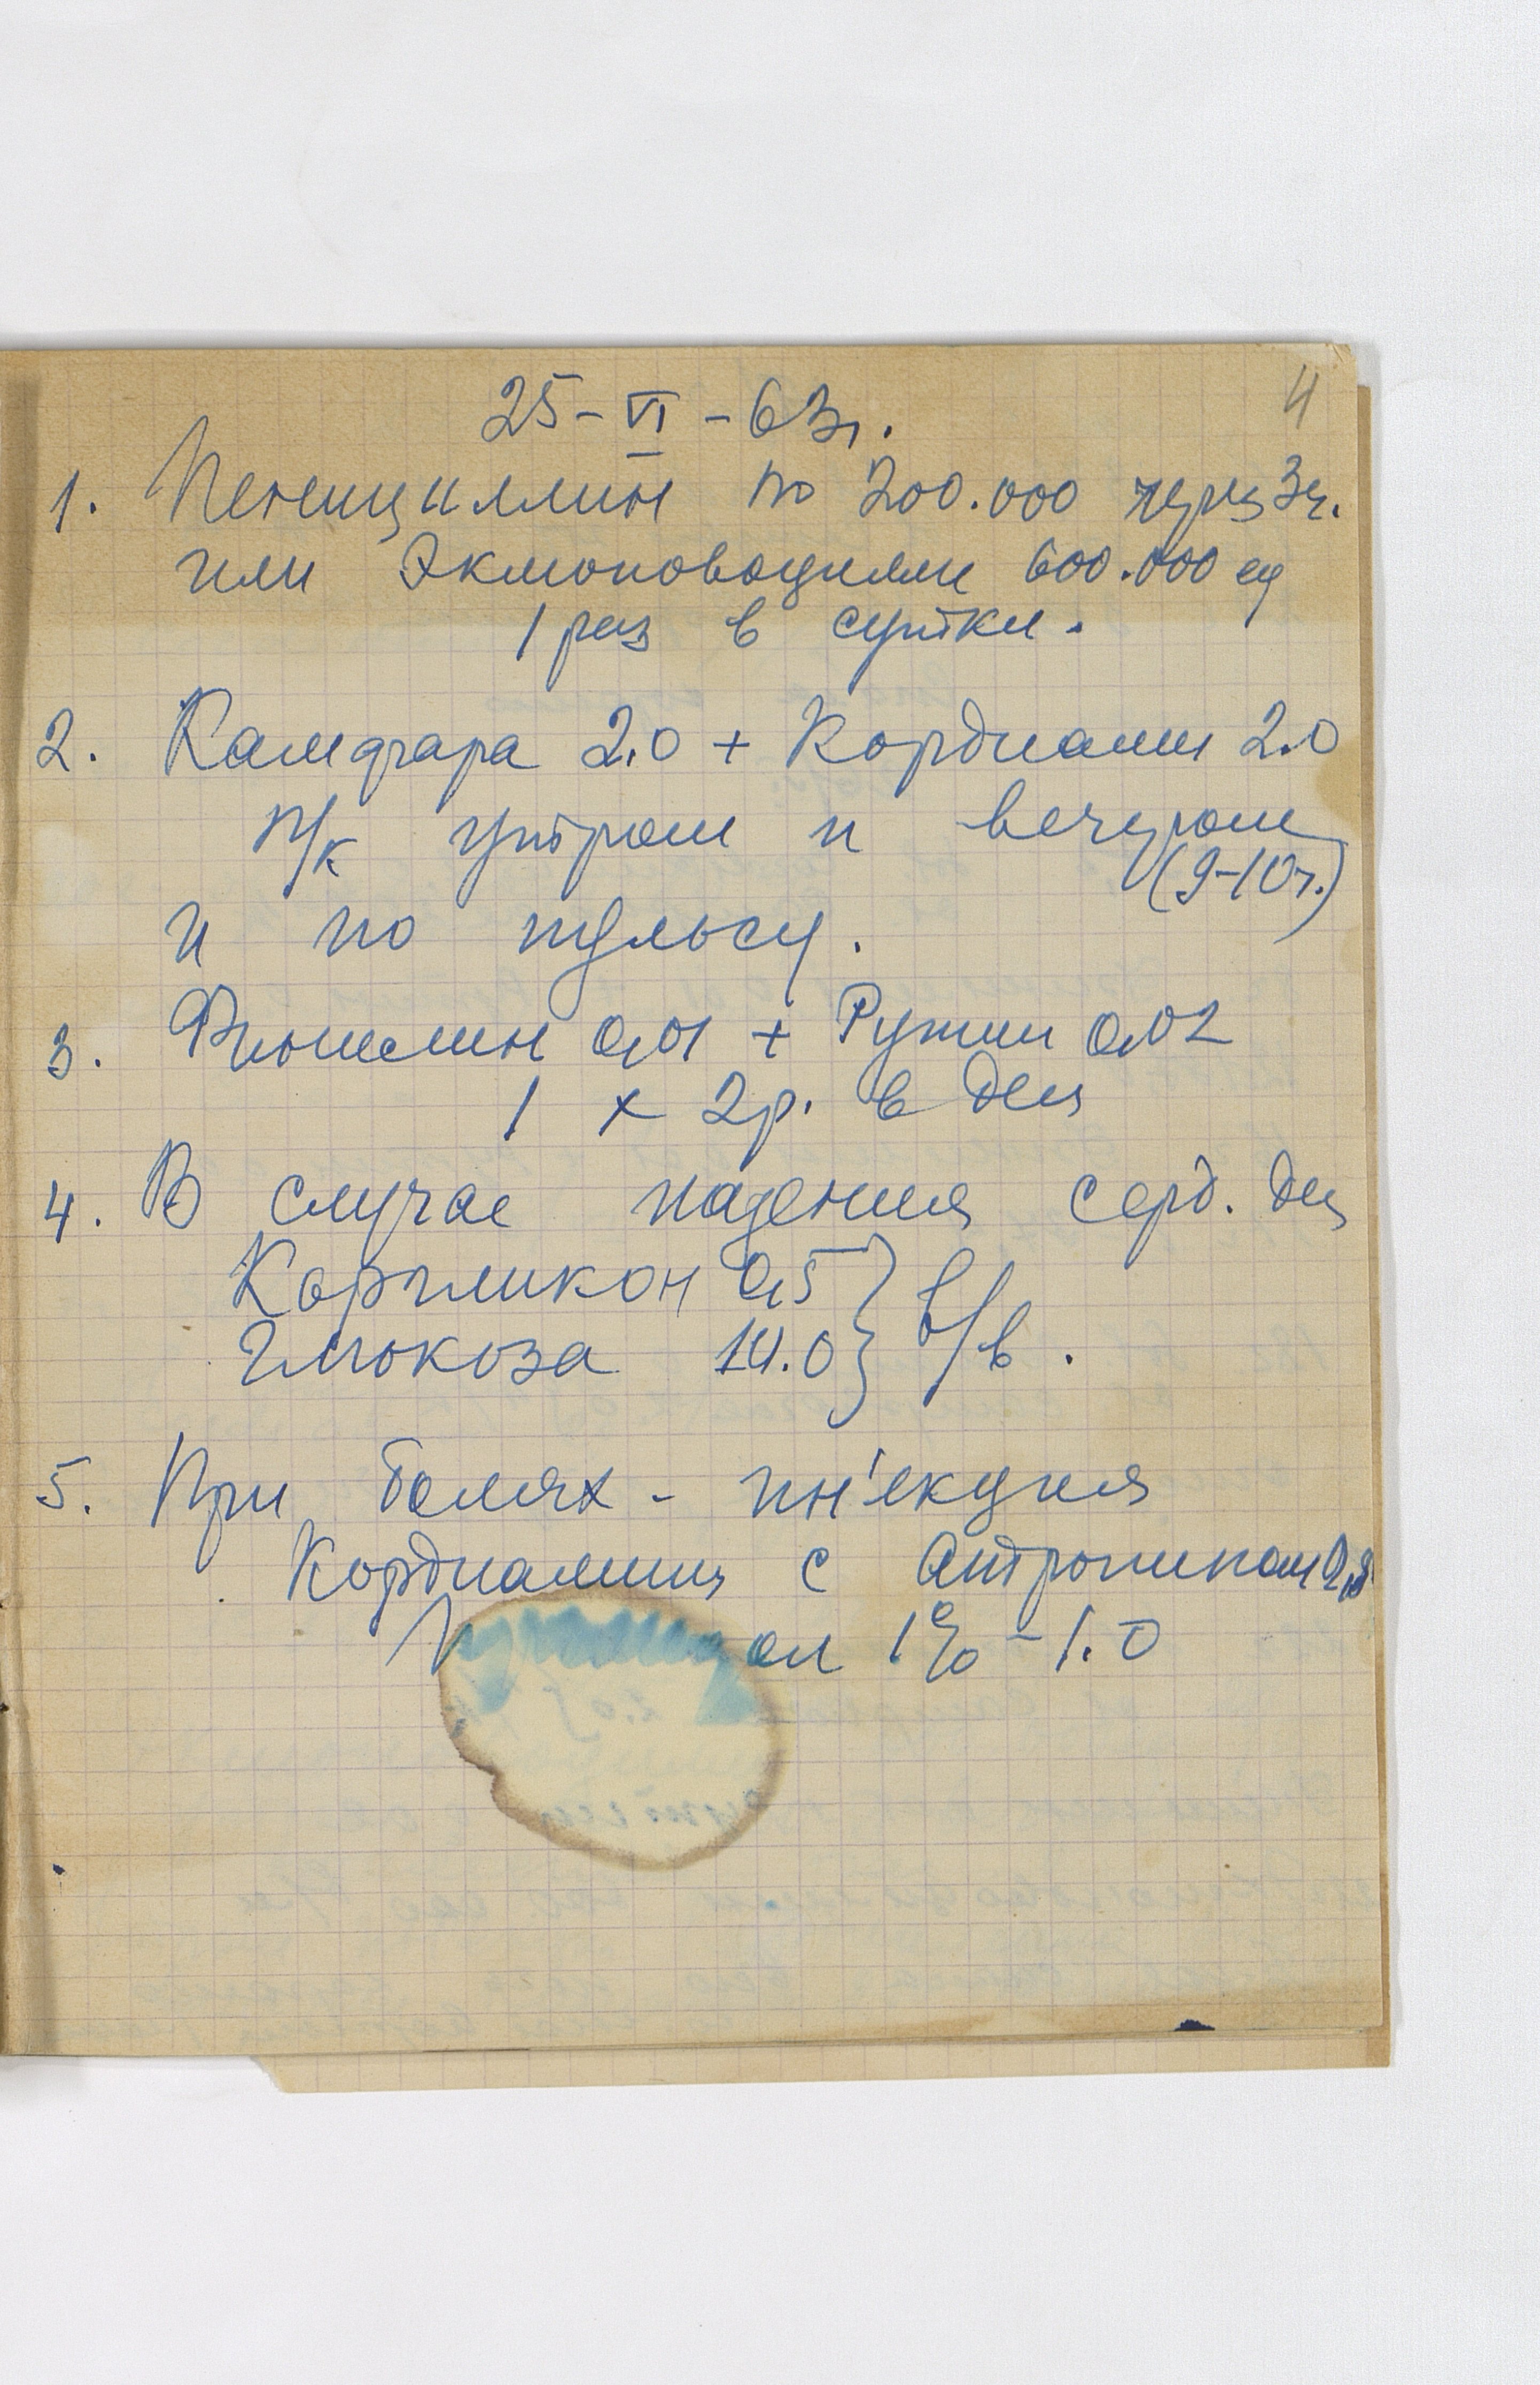 4
25-VI-63г.
1. Пенициллин по 200.000 через 3ч.
или Экмоновоциллин 600.000 ед
1 раз в сутки.
2. Камфара 2.0 + Кордиамин 2.0
п/к утром и вечером
(9-10ч.)
и по пульсу.
3. 0,01 + Рутин 0,02
1 х 2р. в день
4. В случае падения серд. де
Коргликон 0,5 } в/в.
Глюкоза 10.0
5. При болях - ин'екция
Кордиамина с Атропином
ол 1% - 1.0